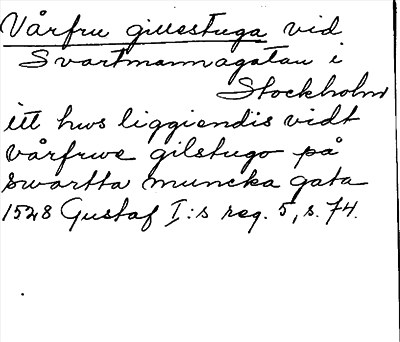 Vårfru gillestuga vid
Svartmannagatan i
Stockholm
itt hws liggiendis vidt
vårfrwe gilstugo på
swartta muncka gata
1528 Gustaf I:s reg. 5, s. 74.